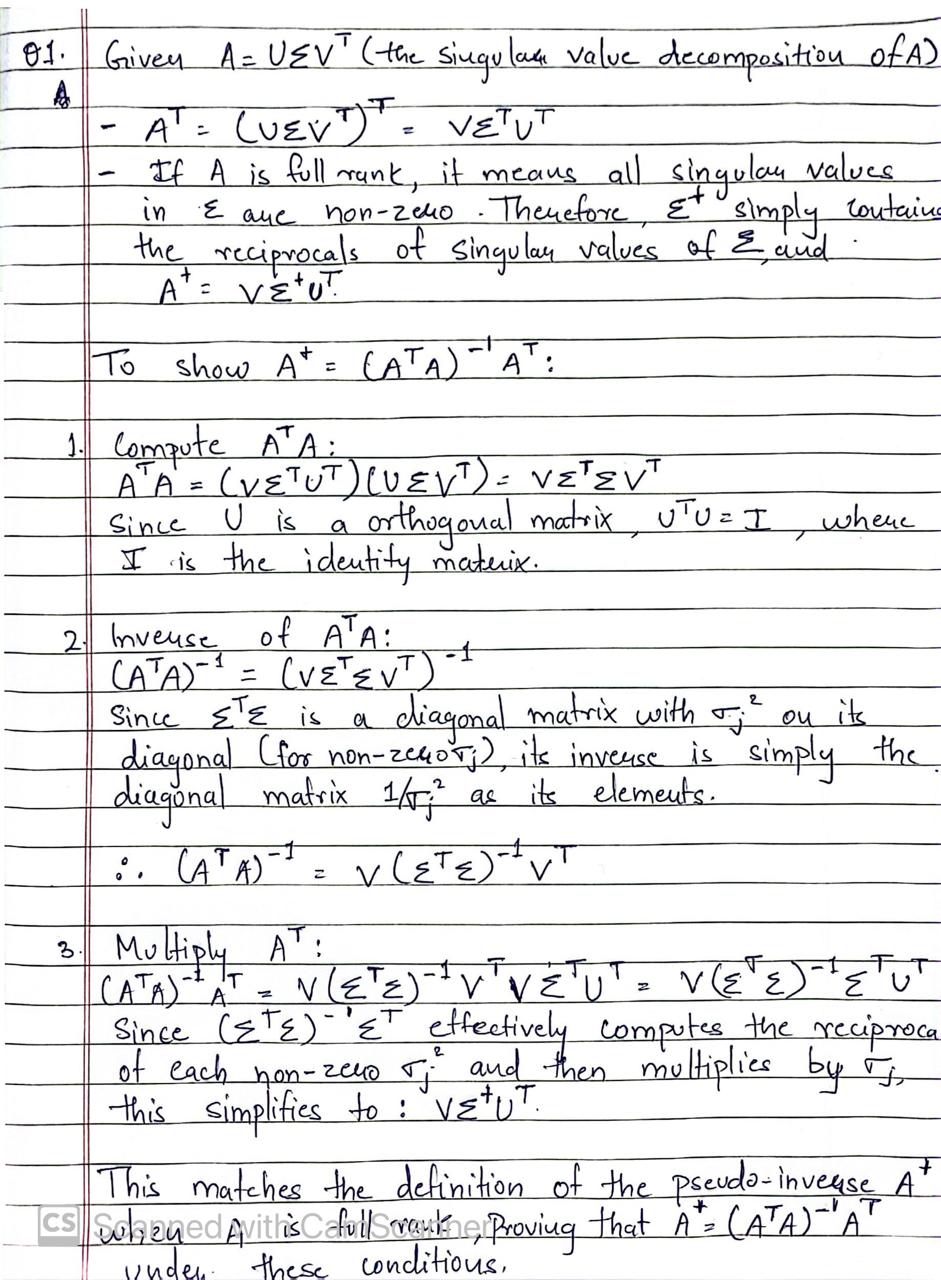 Q1. Given A = UΣVᵀ (the singular value decomposition of A)
- Aᵀ = (UΣVᵀ)ᵀ = VΣᵀUᵀ
- If A is full rank, it means all singular values
in Σ are non-zero. Therefore, Σ⁺ simply contains
the reciprocals of singular values of Σ, and
A⁺ = VΣ⁺Uᵀ.
To show A⁺ = (AᵀA)⁻¹Aᵀ:
1. Compute AᵀA:
AᵀA = (VΣᵀUᵀ)(UΣVᵀ) = VΣᵀΣVᵀ
Since U is a orthogonal matrix, UᵀU = I, where
I is the identity matrix.
2. Inverse of AᵀA:
(AᵀA)⁻¹ = (VΣᵀΣVᵀ)⁻¹
Since ΣᵀΣ is a diagonal matrix with σⱼ² on its
diagonal (for non-zero σⱼ), its inverse is simply the
diagonal matrix 1/σⱼ² as its elements.
∴ (AᵀA)⁻¹ = V(ΣᵀΣ)⁻¹Vᵀ
3. Multiply Aᵀ:
(AᵀA)⁻¹Aᵀ = V(ΣᵀΣ)⁻¹VᵀVΣᵀUᵀ = V(ΣᵀΣ)⁻¹ΣᵀUᵀ
Since (ΣᵀΣ)⁻¹Σᵀ effectively computes the reciproca
of each non-zero σⱼ² and then multiplies by σⱼ,
this simplifies to : VΣ⁺Uᵀ.
This matches the definition of the pseudo-inverse A⁺
when A is full rank, proving that A⁺ = (AᵀA)⁻¹Aᵀ
under these conditions.
CS Scanned with CamScanner